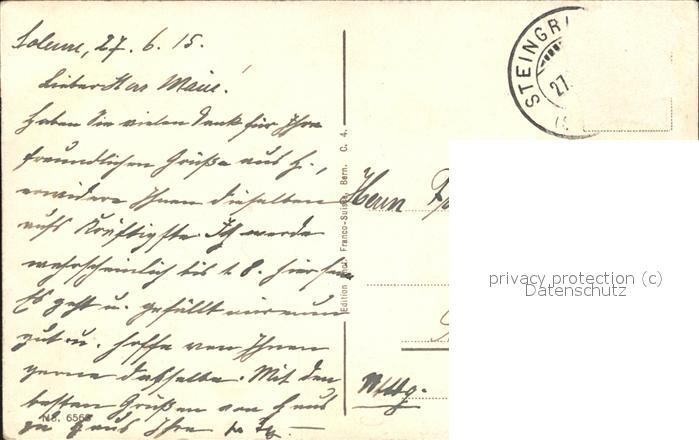 Soleure, 27. 6. 15.
Lieber Herr Maier!
Haben Sie vielen Dank für Ihre
freundlichen Grüße aus H.,
erwidere Ihnen dieselben
aufs Kräftigste. Ich werde
wahrscheinlich bis 1. 8. hier sein
Es geht u. gefällt mir nun
gut u. hoffe von Ihnen
gerne dasselbe. Mit den
besten Grüßen von Haus
zu Haus Ihr
No. 6565
Edition Phot. Franco-Suisse, Bern. C. 4.
STEINGR
27.
Herrn
Wttbg.
privacy protection (c)
Datenschutz